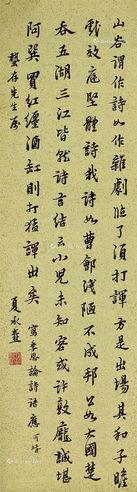 山谷謂作詩如作雜劇臨了須打諢方是出場其和子瞻
戲效庭堅體詩我詩如曹鄶淺陋不成邦公如大國楚
吞五湖三江皆然詩言結云小兒未知客或許敦龐誠堪
阿巽買紅纏酒缸則打猛諢出矣
寫季思論詩語應
存先生屬
夏承燾